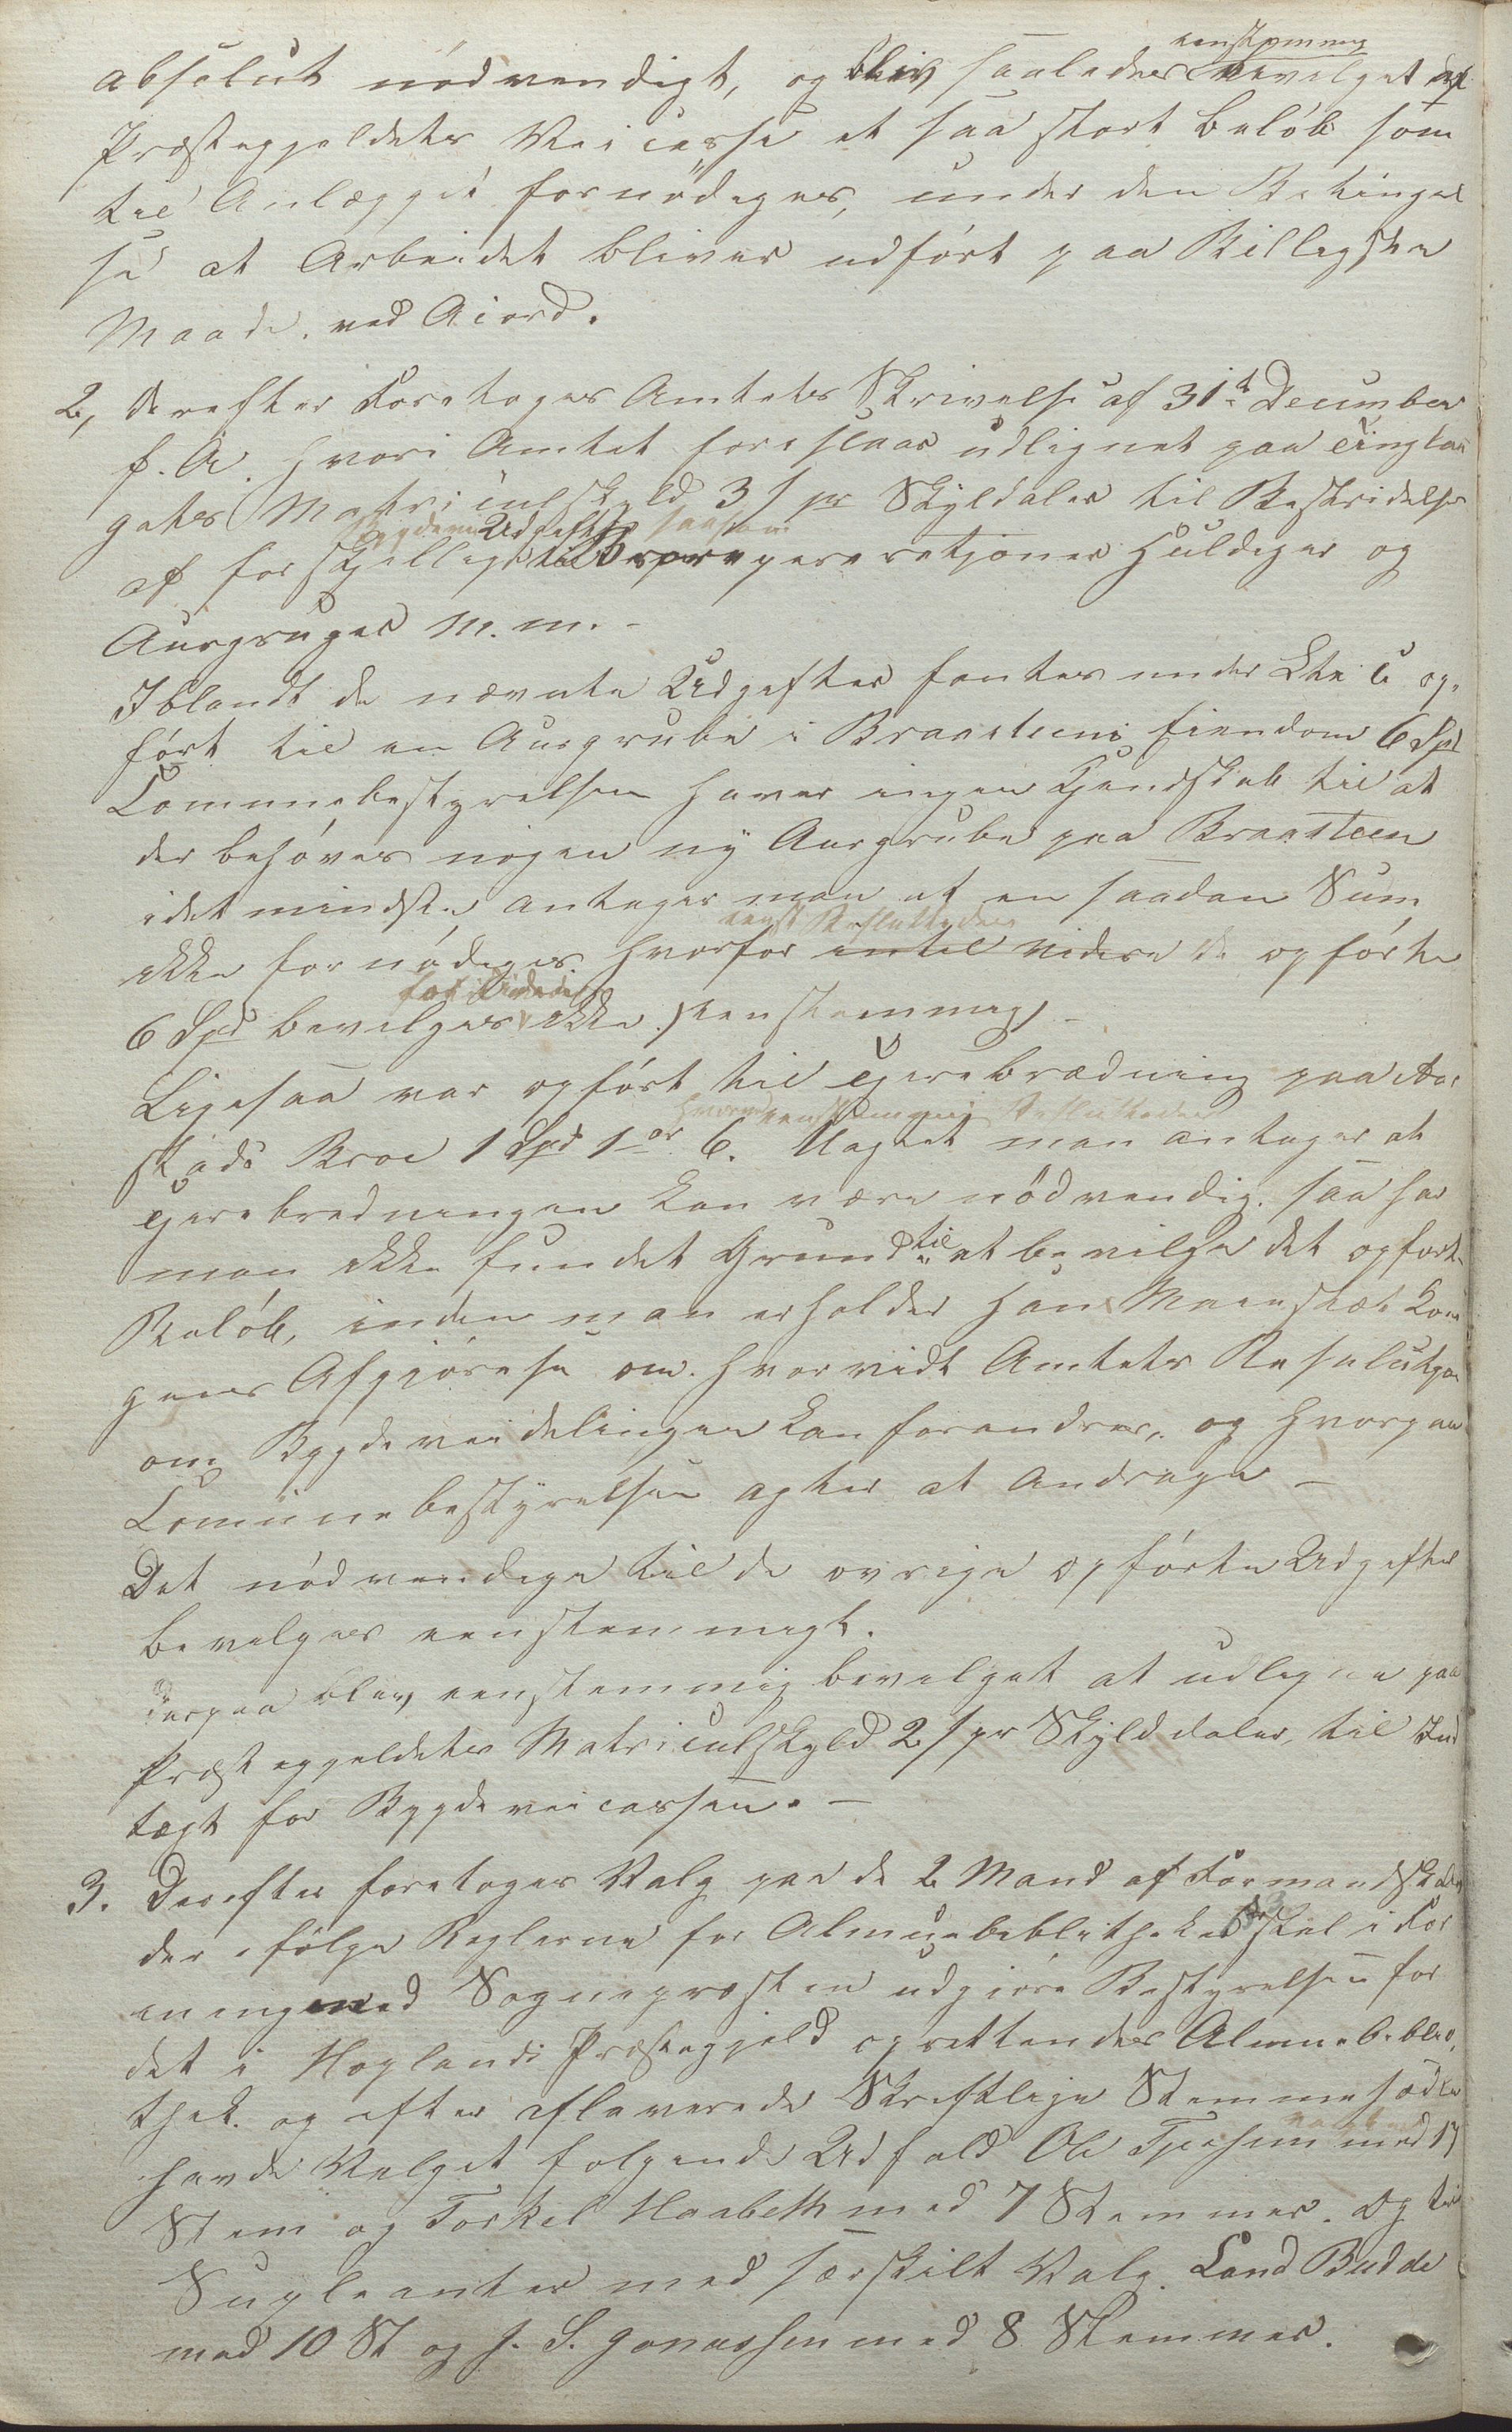 absolut nödvendigt, og blev saaledes eenstemmig bevilget af
Præstegjeldets Veicasse et saa stort Beløb som
til Anlægget fornødiges, under den Betingel
se at Arbeidet bliver udført paa Billigste
Maade ved Acord.
2, Derefter Foretoges Amtets Skrivelse af 31te December
f. A. hvori Amtet foreslaar udlignet paa Tingla
gets Matriculskyld 3 s pr Skylddaler til Bestridelse
af forskjellige Bygdevei Udgifter saasom reperationer Huldiger og
Aurgruger m.m. -
Iblandt de nævnte Udgifter fantes under Litr C op-
ført til en Aurgrube i Braasteens Eiendom 6 Spd
Communebestyrelsen haver ingen Kjendskab til at
der behøves nogen ny Aurgrube paa Braasteen
idetmindste antager man at en saadan Sum
ikke fornødiges. hvorfor eenst Besluttedes intil videre de opførte
6 Spd bevilges for Tiden ikke. (eenstemmig) -
Ligesaa var opført til Gjerebrædning paa
stads Broe 1 Spd 1 ort 6. hvorved eenstemmig Besluttedes Uagtet man antager at
Gjerebredningen kan være nödvendig, saa har
man ikke fundet Grund til at bevilge det opførte
Beløb, inden man erholder Hans Maiestæt Kon
gens Afgjörelse om hvorvidt Amtets Resolutjon
om Bygdeveidelingen kan forandres, og hvorpaa
Communebestyrelsen agter at Andrage -
Det nödvendige til de øvrige opførte Udgifter
bevilges eenstemmigt.
Derpaa blev eenstemmig bevilget at udligne paa
Præstegjeldets Matriculskyld 2 s pr Skylddaler, til Ind
tægt for Bygdeveicassen. -
3. Derefter foretoges Valg paa de 2 Mand af Formandskabet
der ifølge Reglerne for Almuebiblitheket skal i For
ening med Sognepresten udgiøre Bestyrelsen for
det i Høylands Præstegjeld oprettendes Almuebiblio
thek. og efter afleverede Skriftlige Stemmesedler
havde Valget følgende Udfald Ole Tjessem med 17
Stem og Torkel Haabeth med 7 Stemmer. Og til
Supleanter med særskilt Valg. Land Budde
med 10 St og J. S. Jonassen med 8 Stemmer.